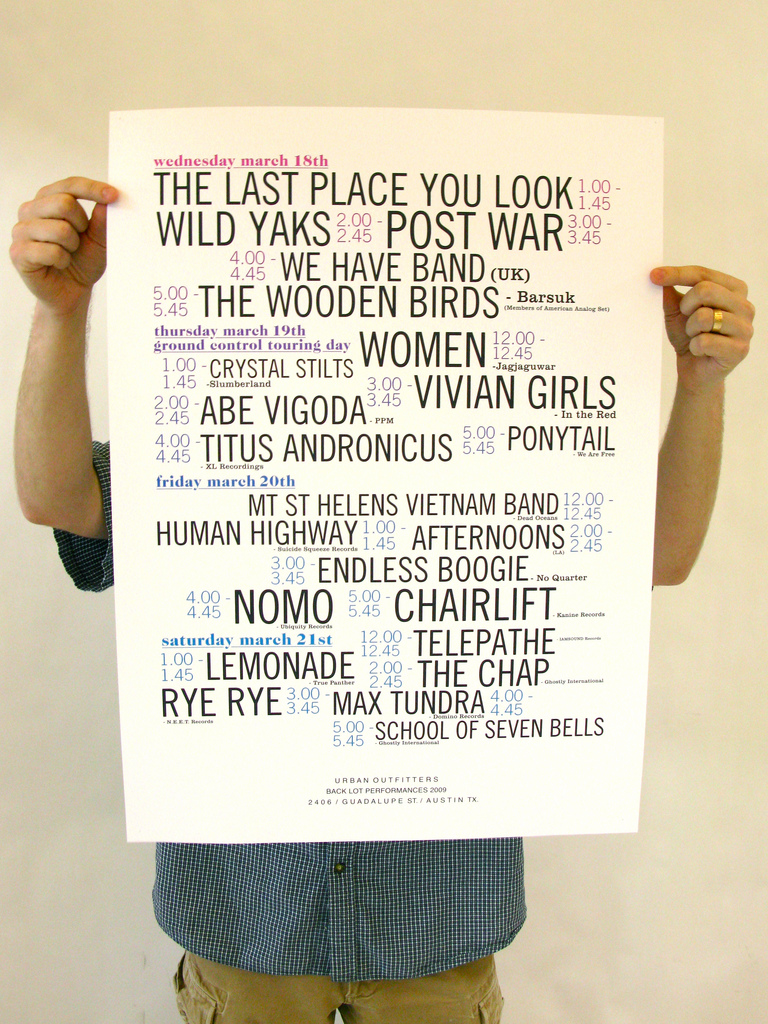 wednesday march 18th
THE LAST PLACE YOU LOOK 1.00 - 1.45
WILD YAKS 2.00 - 2.45 POST WAR 3.00 - 3.45
4.00 - 4.45 WE HAVE BAND (UK)
5.00 - 5.45 THE WOODEN BIRDS - Barsuk
(Members of American Analog Set)
thursday march 19th
ground control touring day
WOMEN 12.00 - 12.45
-Jagjaguwar
1.00 - 1.45 CRYSTAL STILTS
-Slumberland
3.00 - 3.45 VIVIAN GIRLS
- In the Red
2.00 - 2.45 ABE VIGODA - PPM
4.00 - 4.45 TITUS ANDRONICUS
- XL Recordings
5.00 - 5.45 PONYTAIL
- We Are Free
friday march 20th
MT ST HELENS VIETNAM BAND 12.00 - 12.45
- Dead Oceans
HUMAN HIGHWAY 1.00 - 1.45
- Suicide Squeeze Records
AFTERNOONS 2.00 - 2.45
(LA)
3.00 - 3.45 ENDLESS BOOGIE - No Quarter
4.00 - 4.45 NOMO
- Ubiquity Records
5.00 - 5.45 CHAIRLIFT - Kanine Records
saturday march 21st
12.00 - 12.45 TELEPATHE - IAMSOUND Records
1.00 - 1.45 LEMONADE
- True Panther
2.00 - 2.45 THE CHAP - Ghostly International
RYE RYE 3.00 - 3.45
- N.E.E.T. Records
MAX TUNDRA 4.00 - 4.45
- Domino Records
5.00 - 5.45 SCHOOL OF SEVEN BELLS
- Ghostly International
URBAN OUTFITTERS
BACK LOT PERFORMANCES 2009
2406 / GUADALUPE ST. / AUSTIN TX.